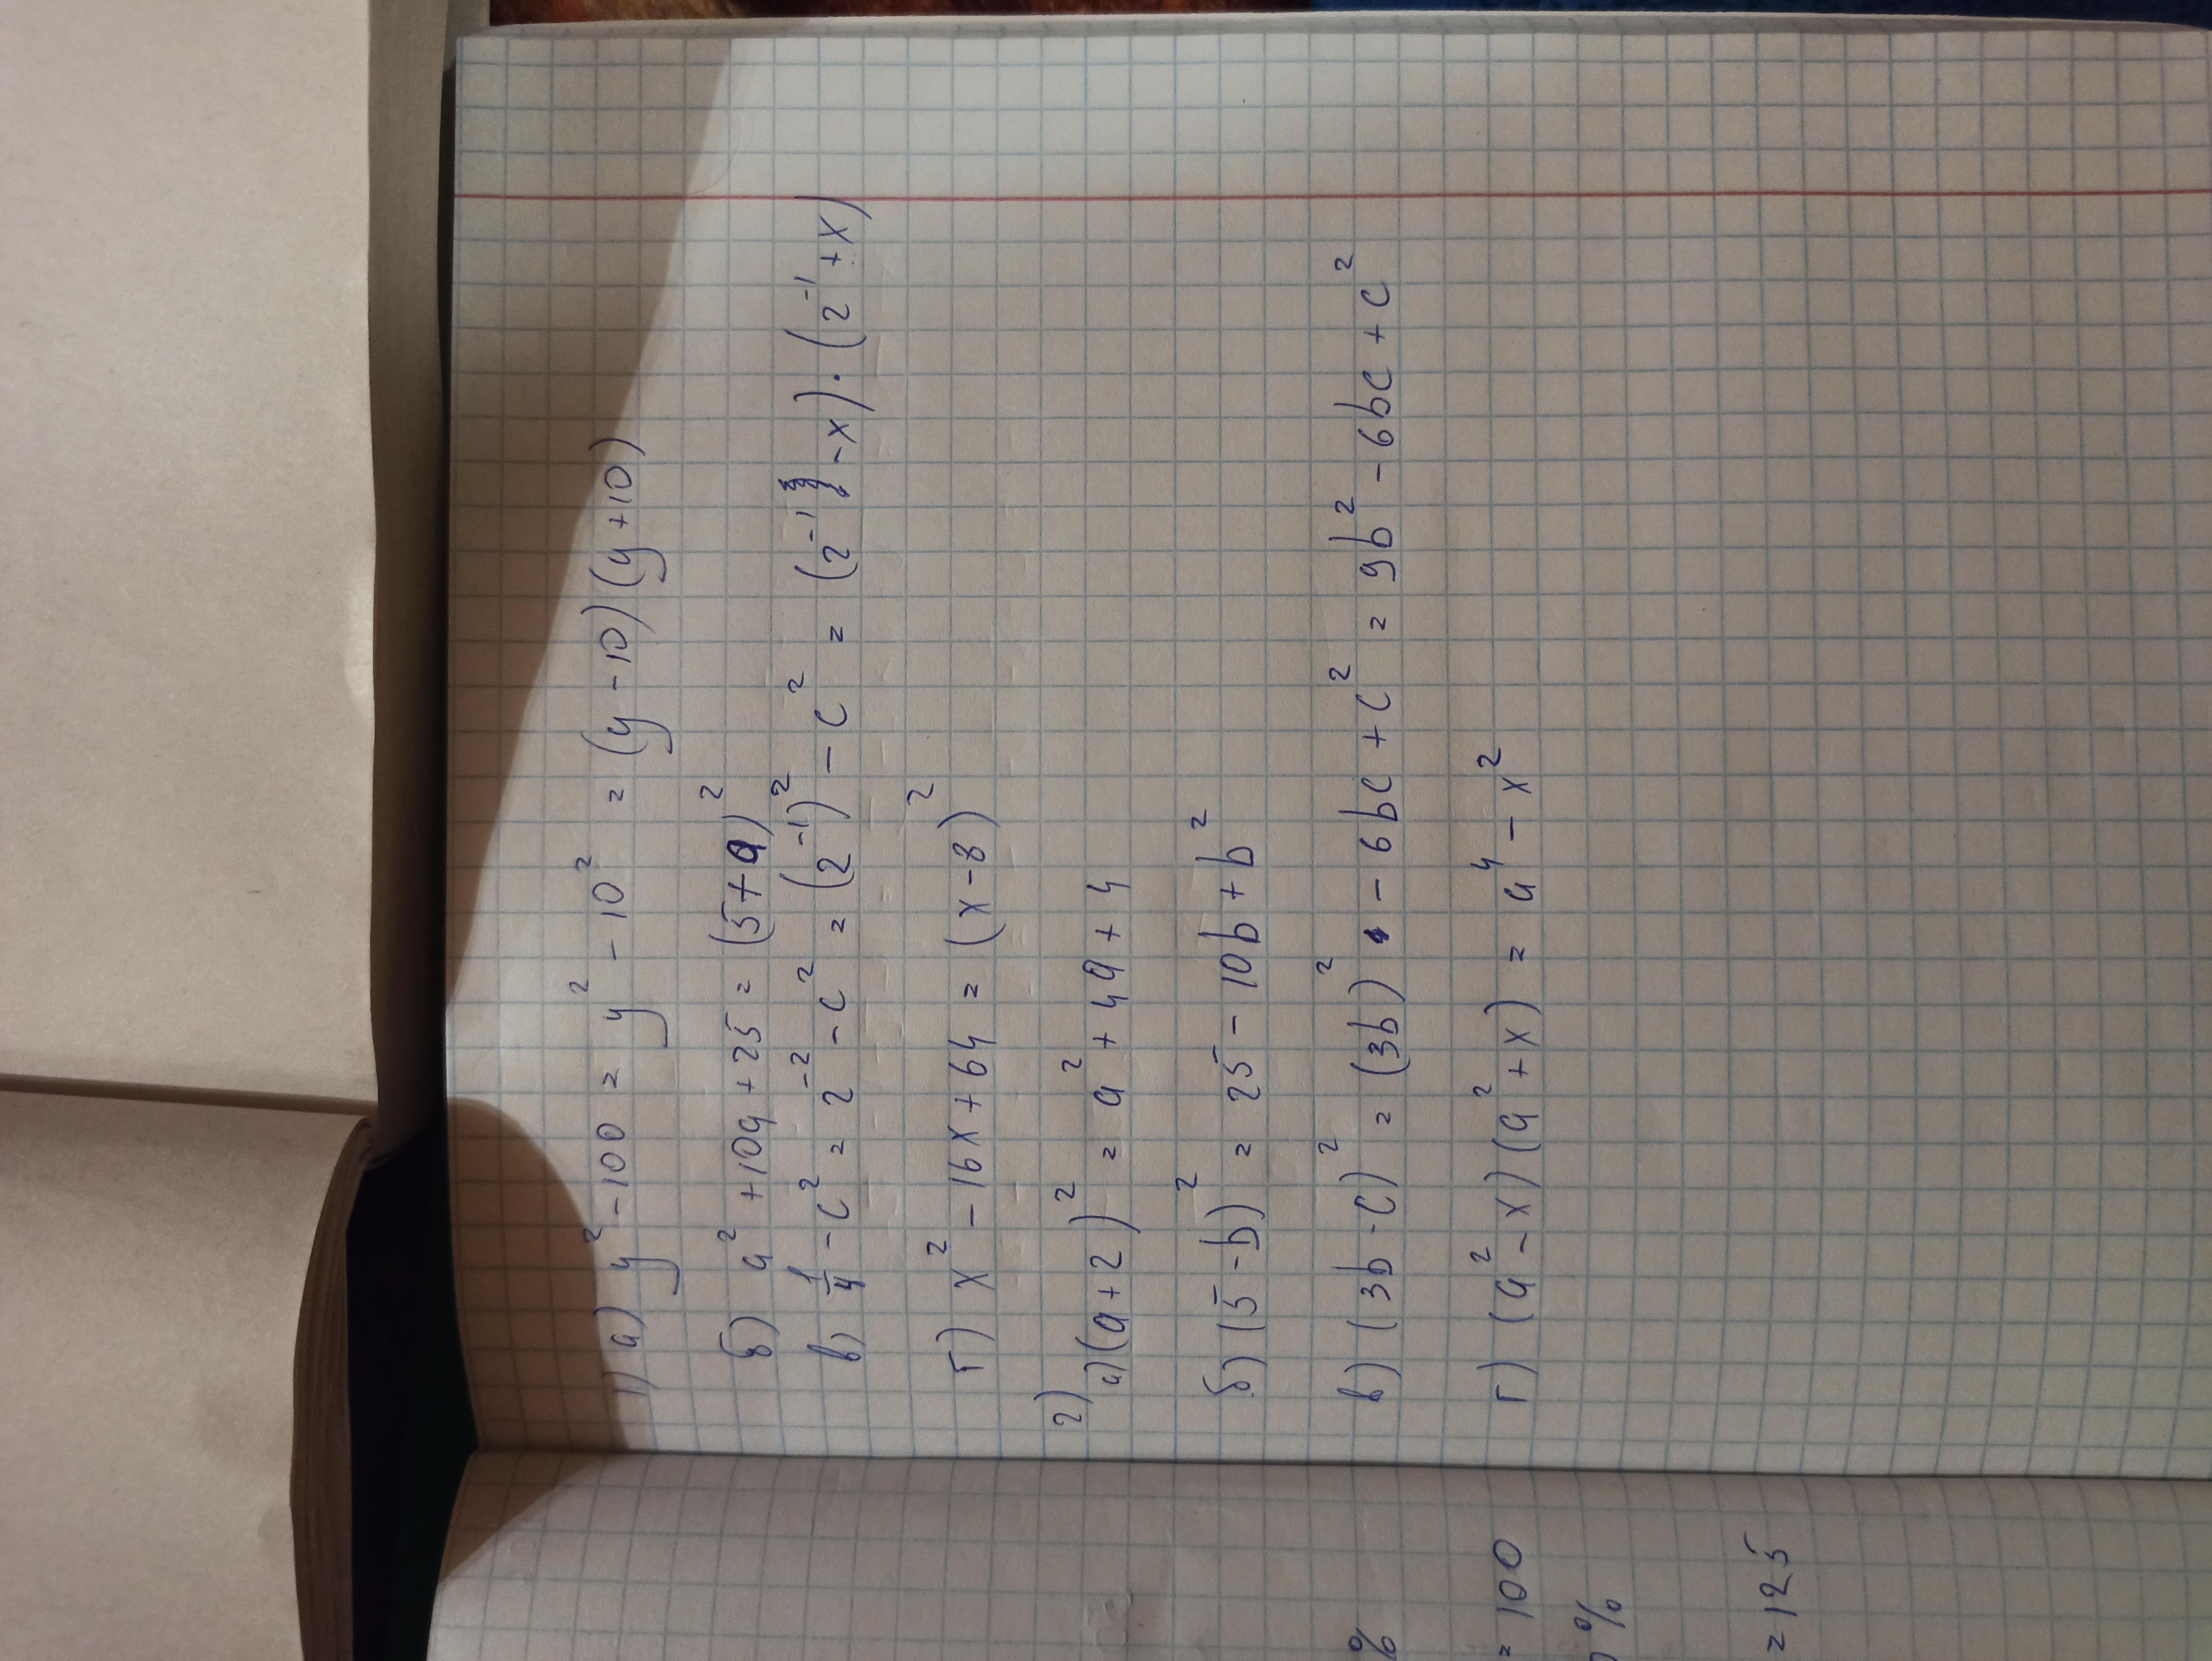 1) а) y² - 100 = y² - 10² = (y - 10)(y + 10)
б) a² + 10a + 25 = (5 + a)²
в) 1/4 - c² = 2⁻² - c² = (2⁻¹)² - c² = (2⁻¹ - x) · (2⁻¹ + x)
г) x² - 16x + 64 = (x - 8)²
2)
а) (a + 2)² = a² + 4a + 4
б) (5 - b)² = 25 - 10b + b²
в) (3b - c)² = (3b)² - 6bc + c² = 9b² - 6bc + c²
г) (a² - x)(a² + x) = a⁴ - x²
%
= 100
%
= 125